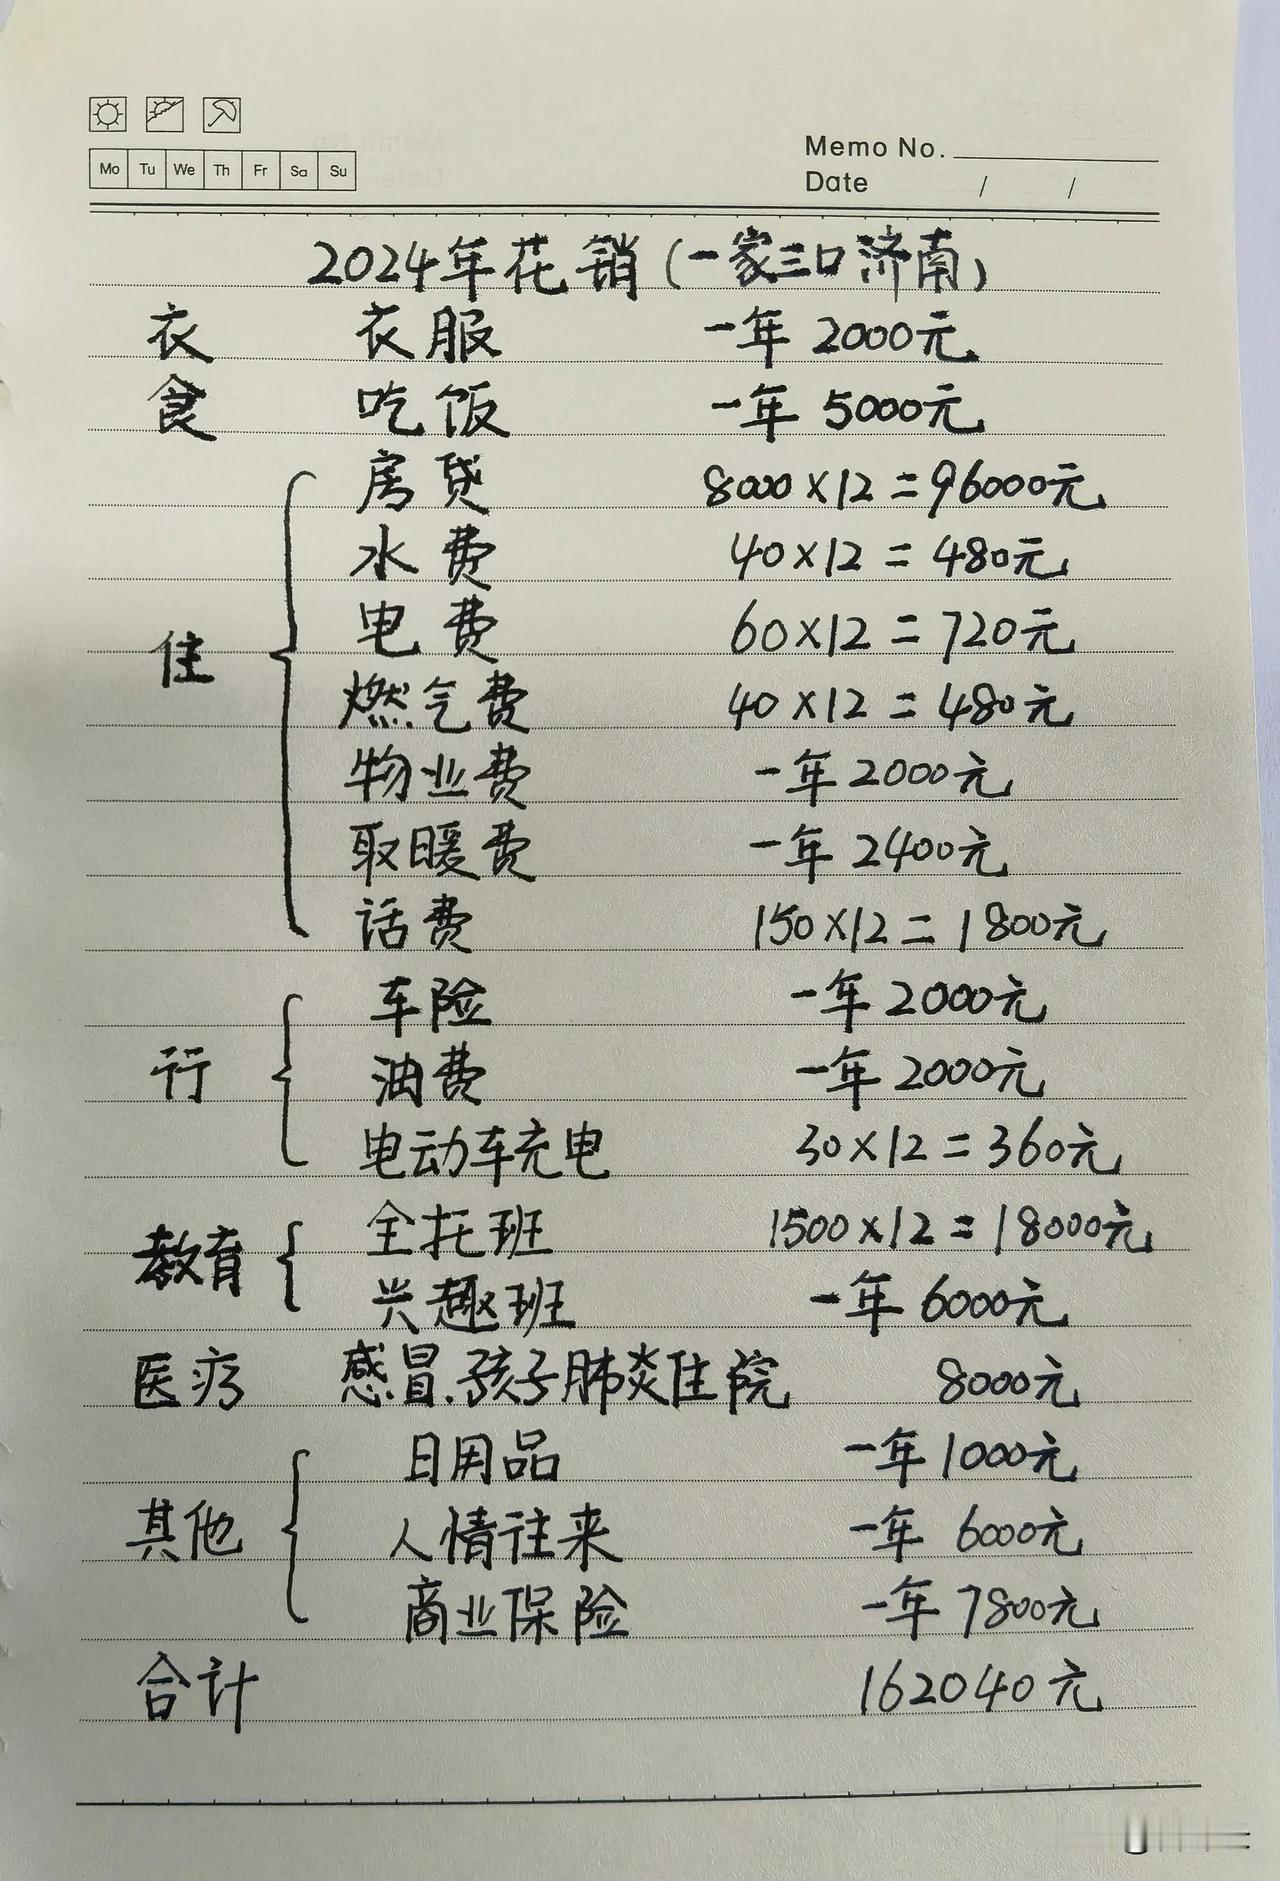 Mo Tu We Th Fr Sa Su
Memo No.
Date / /
2024年花销(一家三口济南)
衣 衣服 一年 2000元
食 吃饭 一年 5000元
房贷 8000×12=96000元
水费 40×12=480元
电费 60×12=720元
住
燃气费 40×12=480元
物业费 一年2000元
取暖费 一年2400元
话费 150×12=1800元
车险 一年2000元
行 油费 一年2000元
电动车充电 30×12=360元
教育 全托班 1500×12=18000元
兴趣班 一年6000元
医疗 感冒.孩子肺炎住院 8000元
日用品 一年1000元
其他 人情往来 一年 6000元
商业保险 一年7800元
合计 162040元